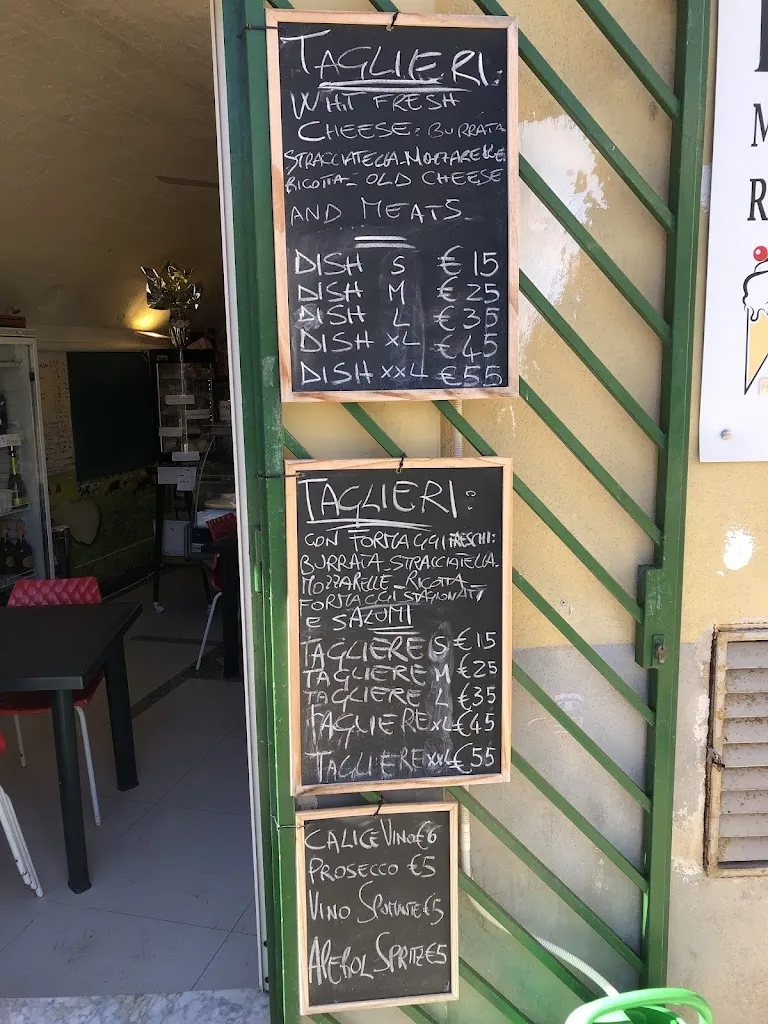 TAGLIERI:
WHIT FRESH
CHEESE: BURRATA
STRACCIATELLA-MOZZARELLE
RICOTTA- OLD CHEESE
AND MEATS-
DISH S €15
DISH M €25
DISH L €35
DISH XL €45
DISH XXL €55
TAGLIERI:
CON FORMAGGI FRESCHI:
BURRATA-STRACCIATELLA-
MOZZARELLE-RICOTTA-
FORMAGGI STAGIONATI
E SALUMI
TAGLIERE S €15
TAGLIERE M €25
TAGLIERE L €35
TAGLIERE XL €45
TAGLIERE XXL €55
CALICE VINO €6
PROSECCO €5
VINO SPUMANTE €5
APEROL SPRITZ €5
M
R